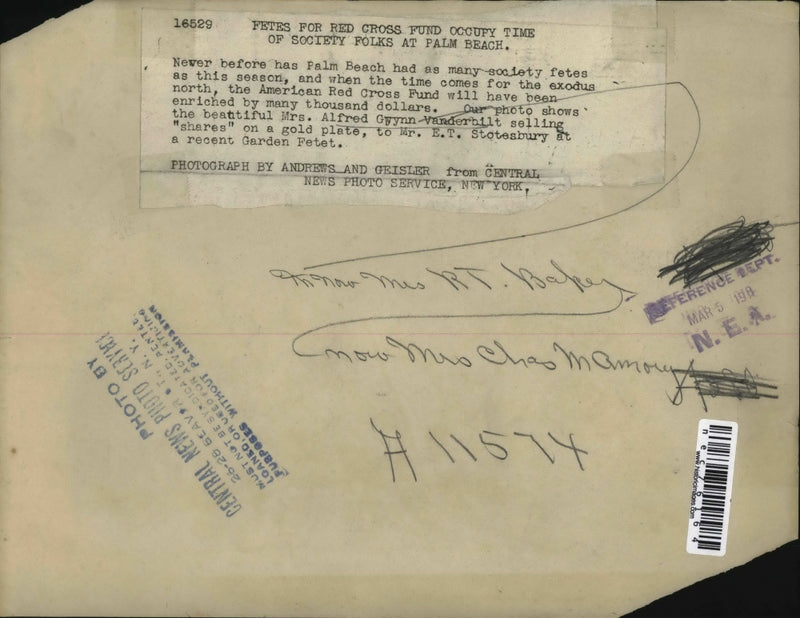 16529 FETES FOR RED CROSS FUND OCCUPY TIME
OF SOCIETY FOLKS AT PALM BEACH.
Never before has Palm Beach had as many society fetes
as this season, and when the time comes for the exodus
north, the American Red Cross Fund will have been
enriched by many thousand dollars. Our photo shows
the beautiful Mrs. Alfred Gwynn Vanderbilt selling
"shares" on a gold plate, to Mr. E.T. Stotesbury at
a recent Garden Fetet.
PHOTOGRAPH BY ANDREWS AND GEISLER from CENTRAL
NEWS PHOTO SERVICE, NEW YORK.
now Mrs R.T. Baker
REFERENCE DEPT.
MAR 5 191
N. E. A.
now Mrs Chas M Amory
A 11574
PHOTO BY
CENTRAL NEWS PHOTO SERVICE
26-28 BEAVER ST., N. Y.
MUST NOT BE SYNDICATED, RENTED,
LOANED OR USED FOR ADVERTISING
PURPOSES WITHOUT PERMISSION